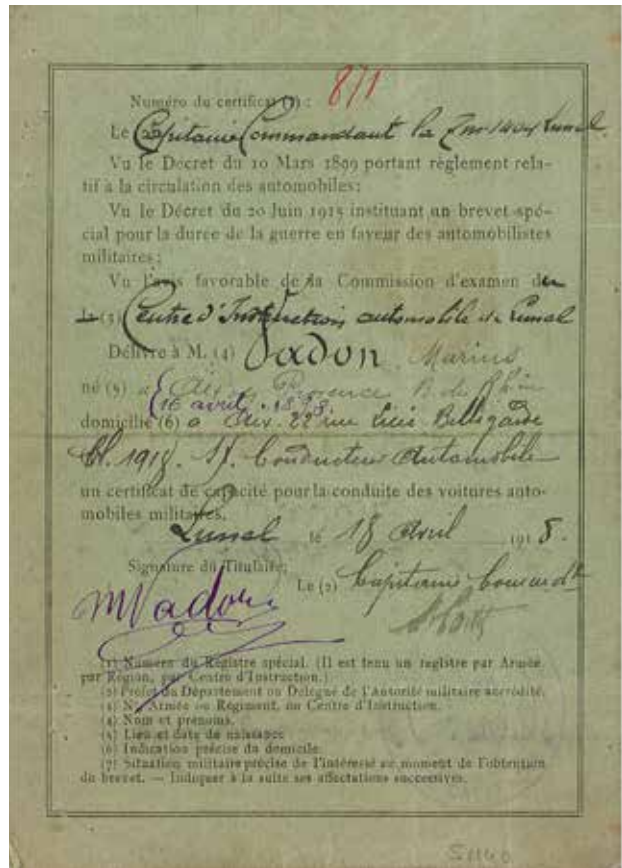 Numéro du certificat (1) : 871
Le Capitaine Commandant la Lunel.
Vu le Décret du 10 Mars 1899 portant règlement rela-
tif à la circulation des automobiles;
Vu le Décret du 20 Juin 1915 instituant un brevet spé-
cial pour la durée de la guerre en faveur des automobilistes
militaires;
Vu l'avis favorable de la Commission d'examen
(3) Centre d'Instruction automobile de Lunel
Délivré à M. (4) Vadon Marius
né (5) à Aix Provence B du Rhône
16 avril 1898
domicilié (6) à Aix. 22 rue Bellegarde
Cl. 1918. Conducteur Automobile
un certificat de capacité pour la conduite des voitures auto-
mobiles militaires.
Lunel le 18 Avril 1918.
Signature du Titulaire,
Le (2) Capitaine Command
MVadon
(1) Numéro du Registre spécial. (Il est tenu un registre par Armée
par Région, par Centre d'Instruction.)
(2) Préfet du Département ou Délégué de l'Autorité militaire accrédité.
(3) N° Armée ou Régiment, ou Centre d'Instruction.
(4) Nom et prénoms.
(5) Lieu et date de naissance
(6) Indication précise du domicile.
(7) Situation militaire précise de l'intéressé au moment de l'obtention
du brevet. — Indiquer à la suite ses affectations successives.